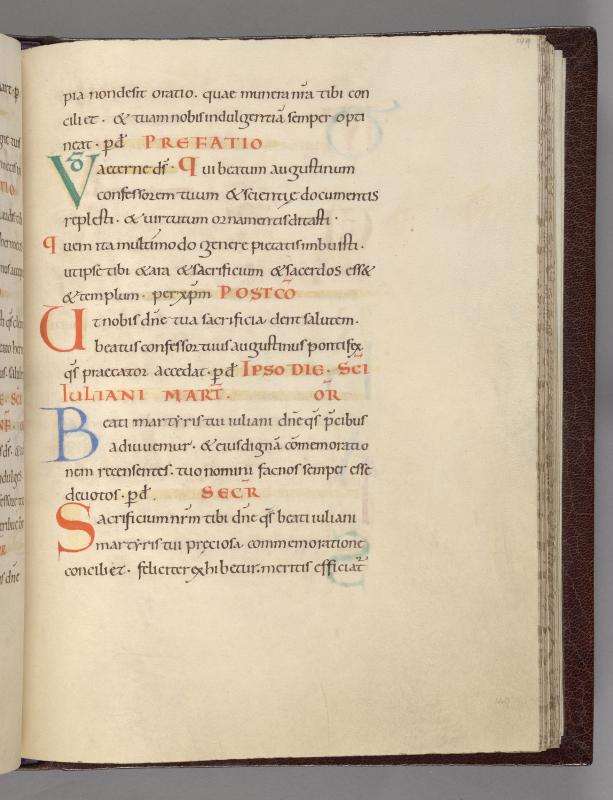 pia nondesit oratio. quae munera nr̄a tibi con
ciliet. & tuam nobis indulgentiā semper opti
neat. p̱ d̄ PREFATIO
VD aeterne ds̄. qui beatum augustinum
confessorem tuum & scientię documentis
replesti. & virtutum ornamentis ditasti.
quem ita multimodo genere pietatis imbuisti.
ut ipse tibi & ara & sacrificium & sacerdos ess&
& templum. per xp̄m POSTCŌ
Ut nobis dn̄e tua sacrificia dent salutem.
beatus confessor tuus augustinus pontifex
qs̄ praecator accedat. p̱ d̄ IPSO DIE. SCI
IULIANI MART̄. OR̄
Beati martyris tui iuliani dn̄e qs̄ p̄cibus
adiuuemur. & eius digna cōmemoratio
nem recensentes. tuo nomini fac nos semper esse
deuotos. p̱ d̄. SECR̄
Sacrificium nr̄m tibi dn̄e qs̄ beati iuliani
martyris tui preciosa commemoratione
conciliet. feliciter exhibetur. meritis efficiat̄
149